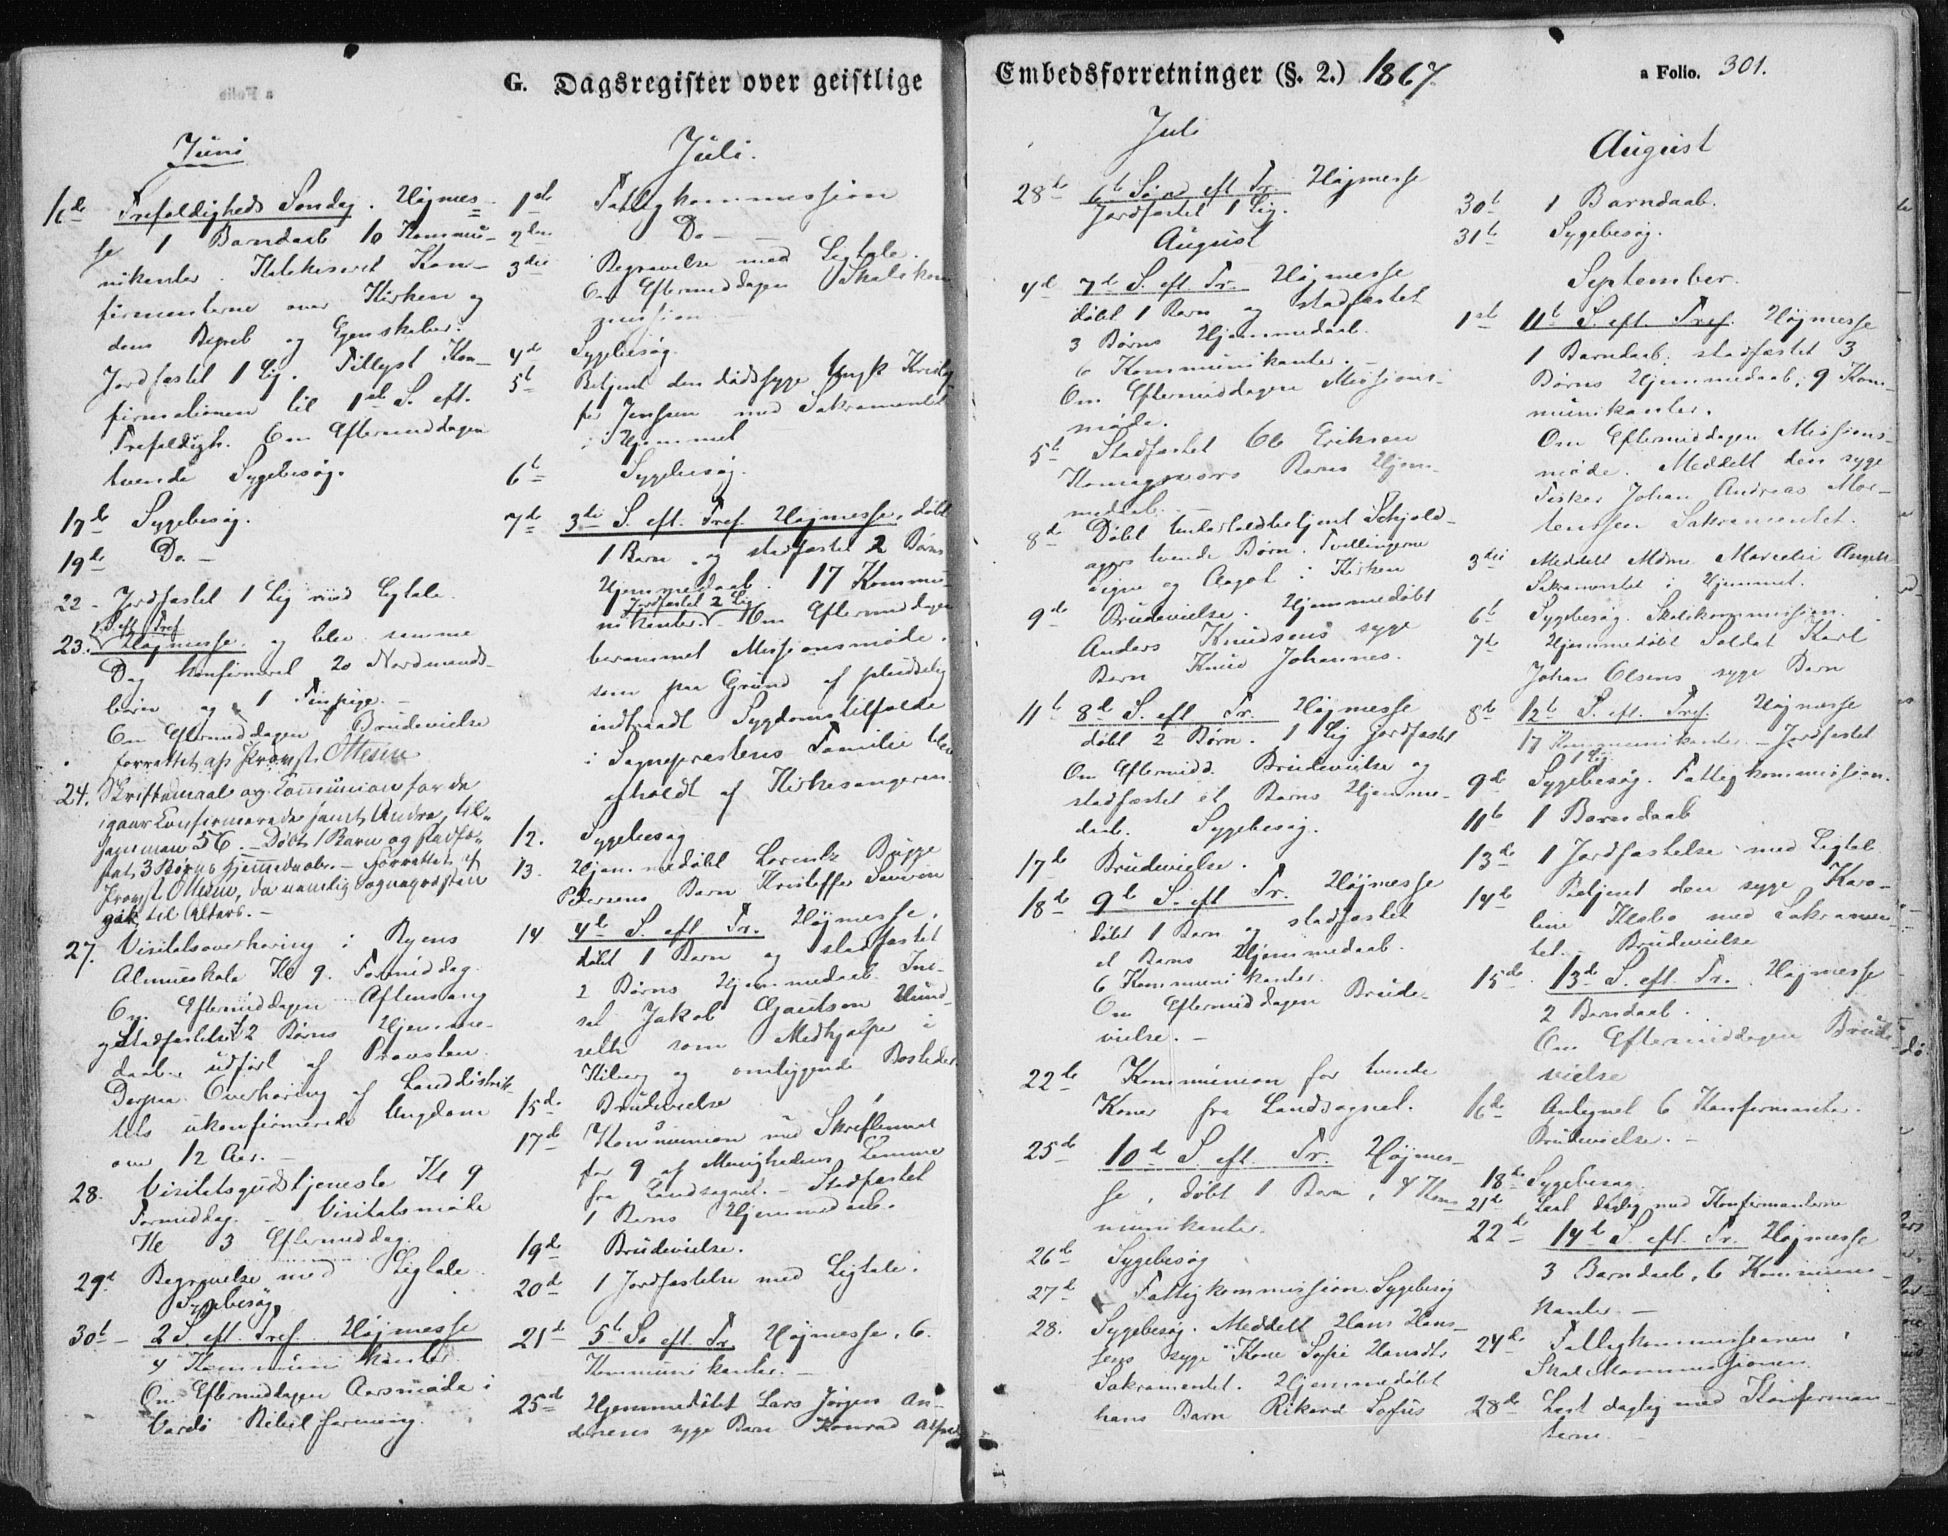 G. Dagsregister over geistlige
Juni
16de Trefoldigheds Søndag. Højmes-
se 1 Barndaab 10 Kommu-
nikanter. Katekiseret Kon-
firmanterne over Kirken og
dens Begreb og Egenskaber.
Jordfæstet 1 Lig. Tillyst Kon-
firmationen til 1ste S. eft.
Trefoldigh. Om Eftermiddagen
tvende Sygebesøg.
17de Sygebesøg.
19de Do. -
22 - Jordfæstet 1 Lig med Ligtale.
1 S. eft. Tref.
23. Højmesse. og blev samme
Dag konfirmeret 20 Nordmands-
børn og 1 Finpige. -
Om Eftermiddagen Brudevielse
forrettet af Provst Ottesen
24. Skriftemaal og Communion for de
igaar Confirmerede samt Andre, til-
sammen 56. - Døbt 1 Barn og stadfæ-
stet 3 Børns Hjemmedaab. - Forrettet af
Provst Ottesen, da nemlig Sognepræsten
gik til Alters. -
27. Visitatsoverhøring i Byens
Almueskole Kl 9. Formiddag.
Om Eftermiddagen Aftensang
og Stadfæstelse 2 Børns Hjemme-
daab udført af Provsten.
Derpaa Overhøring af Landdistrik-
tets ukonfirmerede Ungdom
over 12 Aar. -
28. Visitatsgudstjeneste Kl 9
Formiddag. - Visitatsmøde
Kl 3 Eftermiddag.
29d Begravelse med Ligtale.
Sygebesøg
30t - 2 S. eft. Tref. Højmesse
4 Kommunikanter.
Om Eftermiddagen Aarsmøde i
Vardø Bibelforening.
Juli.
1ste Fattigkommission
2den Do -
3die Begravelse med Ligtale.
Om Eftermiddagen Skolekom
mission. -
4de Sygebesøg.
5t Betjent den dødssyge Kristof-
fer Jensen med Sakramentet
i Hjemmet
6t Sygebesøg.
7de 3die S. eft. Tref. Højmesse, døbt
1 Barn og stadfæstet 2 Børns
Hjemmedaab. 17 Kommu-
Jordfæstet 2 Lig
nikanter. Om Eftermiddagen
berammet Missionsmøde.
som paa Grund af pludselig
indtraadt Sygdomstilfælde
i Sognepræstens Familie blev
afholdt af Kirkesangeren.
12. Sygebesøg
13. Hjemmedøbt Lorentz Bugge
Pedersens Barn Kristoffer Severin
14 4de S. eft. Tr. Højmesse,
døbt 1 Barn og stadfæstet
2 Børns Hjemmedaab. Ind-
sat Jakob Gjætsen
som Medhjælper i
Kiberg og omliggende Bosteder.
15de Brudevielse
17de Kommunion med Skriftemaal
for 9 af Menighedens Lemmer
fra Landsognet. - Stadfæstet
1 Barns Hjemmedaab.
19de Brudevielse.
20de 1 Jordfæstelse med Ligtale.
21de 5te So eft. Tr. Højmesse. 6.
Kommunikanter. -
25de Hjemmedøbt Lars Jørgen An-
dersens syge Barn Konrad Alfred
Embedsforretninger (§. 2.) 1867.
a Folio. 301.
Juli
28de 6te Sønd eft Tr. Højmesse
Jordfæstet 1 Lig.
August
4d 7de S. eft Tr. Højmesse
døbt 1 Barn og stadfæstet
3 Børns Hjemmedaab.
6 Kommunikanter. -
Om Eftermiddagen Missions-
møde.
5t Stadfæstet Ole Eriksen
Komagværs Barns Hjem-
medaab. -
8de Døbt Underfoldbetjent Schjeld-
agers tvende Børn. Tvillingerne
Signe og Aagot i Kirken
9de Brudevielse. Hjemmedøbt
Anders Knudsens syge
Barn Knud Johannes.
11t 8de S. eft. Tr. Højmesse
døbt 2 Børn. 1 Lig jordfæstet
Om Eftermidd. Brudevielse og
stadfæstet et Barns Hjemme-
daab. Sygebesøg.
17de Brudevielse.
18de 9de S. eft Tr. Højmesse
døbt 1 Barn og stadfæstet
et Barns Hjemmedaab.
6 Kommunikanter.
Om Eftermiddagen Brude-
vielse. -
22de Kommunion for tvende
Koner fra Landsognet.
25de 10de S. eft. Tr. Højmes-
se, døbt 1 Barn, 4 Kom-
munikanter.
26de Sygebesøg
27de Fattigkommission. Sygebesøg
28. Sygebesøg. Meddelt Hans Han-
sens syge Kone Sofie Hansdtr
Sakramentet. Hjemmedøbt
hans Barn Rikard Sofus
August
30t 1 Barndaab.
31t Sygebesøg.
September.
1ste 11te S. eft. Tref. Højmesse
1 Barndaab. stadfæstet 3
Børns Hjemmedaab; 9 Kom-
munikanter.
Om Eftermiddagen Missions-
møde. Meddelt den syge
Fisker Johan Andreas Mor-
tensen Sakramentet.
3die Meddelt Mdme Marcelie Angell
Sakramentet i Hjemmet.
6t Sygebesøg. Skolekommission.
7de Hjemmedøbt Soldat Karl
Johan Olsens syge Barn
8de 12te S. eft. Tref. Højmesse
17 Kommunikanter - Jordfæstet
1 Lig
9de Sygebesøg. Fattigkommission.
11te 1 Barndaab
13de 1 Jordfæstelse med Ligtale
14de Betjent den syge Karo-
line Klebo med Sakramen-
tet. - Brudevielse
15de 13de S. eft. Tr. Højmesse
2 Barndaab.
Om Eftermiddagen Brude-
vielse
16de Antegnet 6 Konfirmanter.
Brudevielse. -
18de Sygebesøg
21de Læst daglig med Konfirmanterne
22de 14de S. eft. Tr. Højmesse
3 Barndaab, 6 Kommuni-
kanter. -
24de Fattigkommissionen,
Skolekommissionen
28de Læst daglig med Konfirman-
terne. -